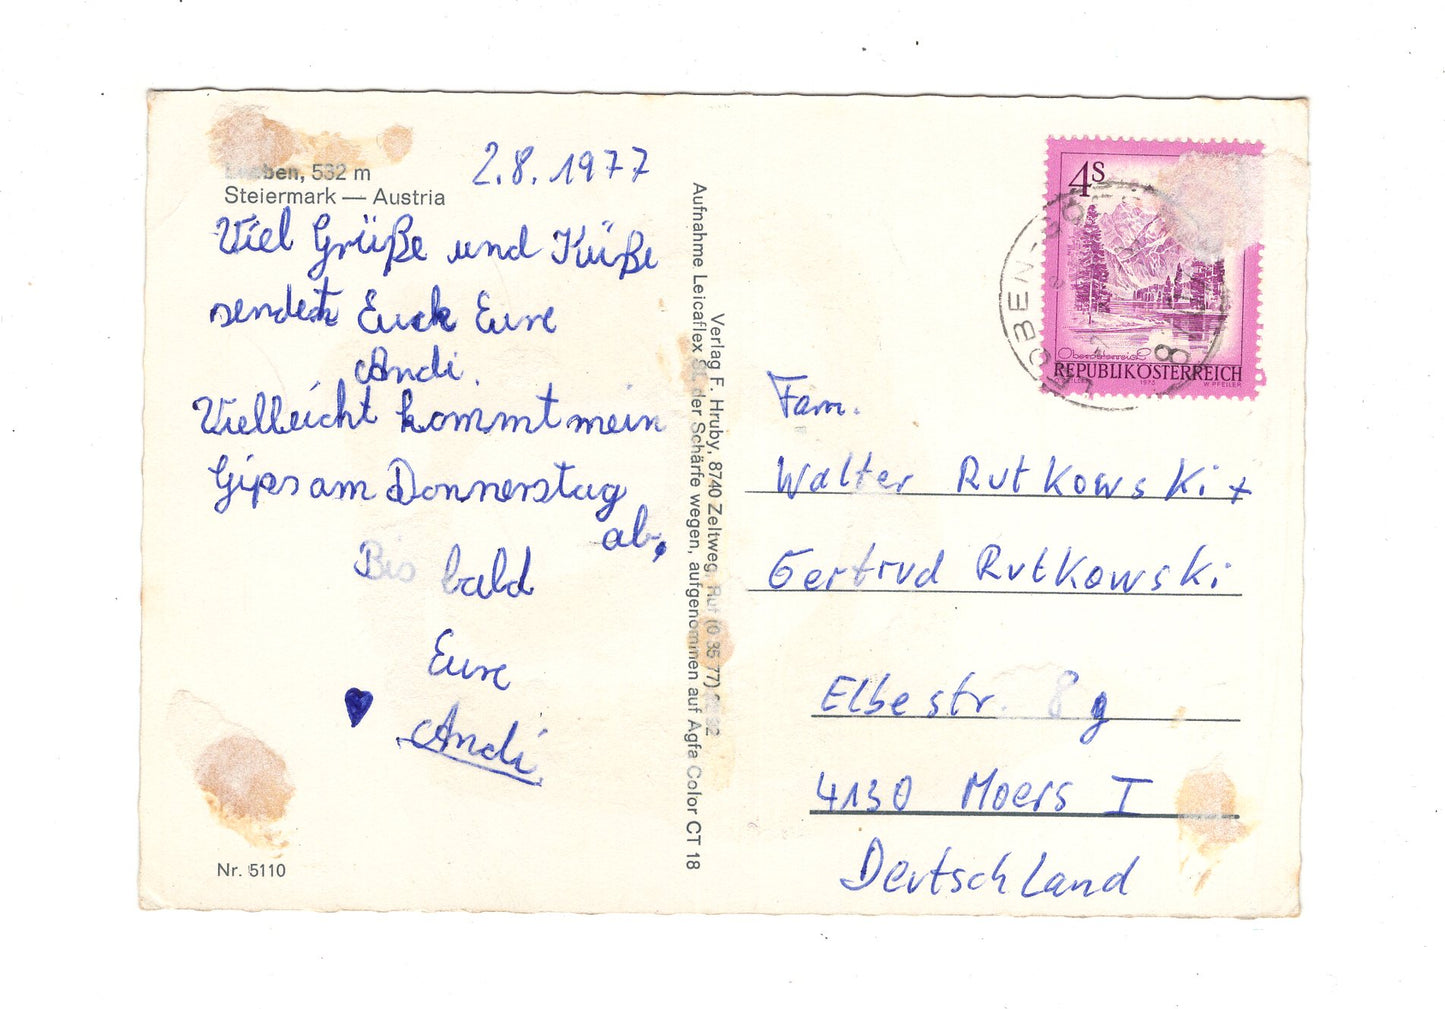 Leoben, 532 m
Steiermark — Austria
2.8.1977
Viel Grüße und Küße
sendet Euch Eure
Andi.
Vielleicht kommt mein
Gips am Donnerstag
ab,
Bis bald
Eure
Andi
Nr. 5110
Verlag F. Hruby, 8740 Zeltweg, Ruf (0 35 77)
Aufnahme Leicaflex SL der Schärfe wegen, aufgenommen auf Agfa Color CT 18
4S
Oberösterreich
REPUBLIK ÖSTERREICH
1973
W. PFEILER
LEOBEN
Fam.
Walter Rutkowski +
Gertrud Rutkowski
Elbestr. 8g
4130 Moers I
Deutschland